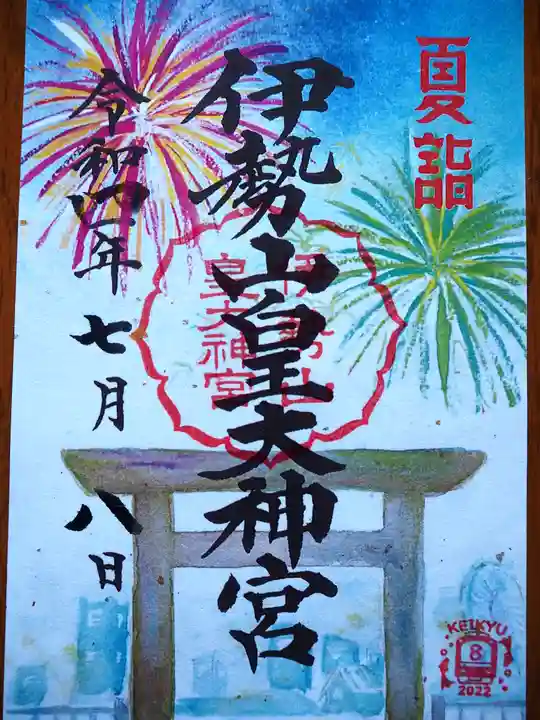 夏詣
伊勢山皇大神宮
令和四年七月八日
伊勢山
皇大神宮
KEIKYU
8
2022